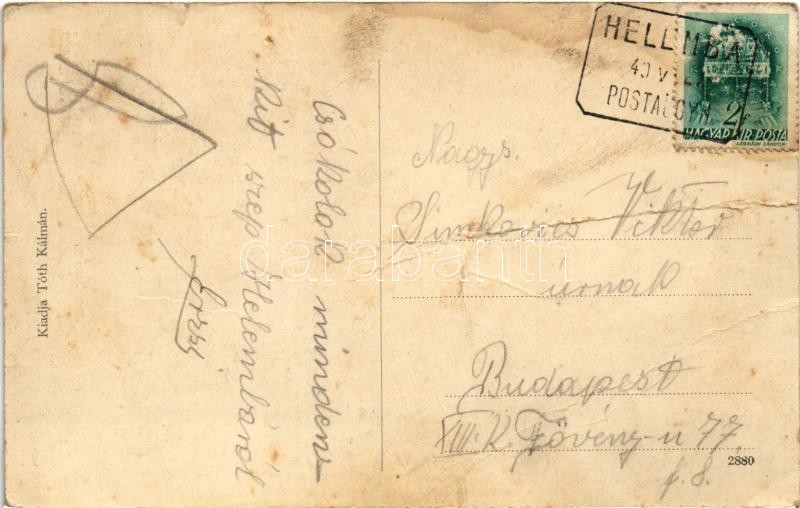 Kiadja Tóth Kálmán.
Csókolok minden-
kit szep Helembáról
Bözsi
HELEMBA
POSTAÜGYN.
2f
MAGYAR KIR. POSTA
LÉGRÁDY SÁNDOR
Nagys.
Simkovics Viktor
úrnak
Budapest
XIII. K. Fövény-u 77
f. 8.
2880
darabanth